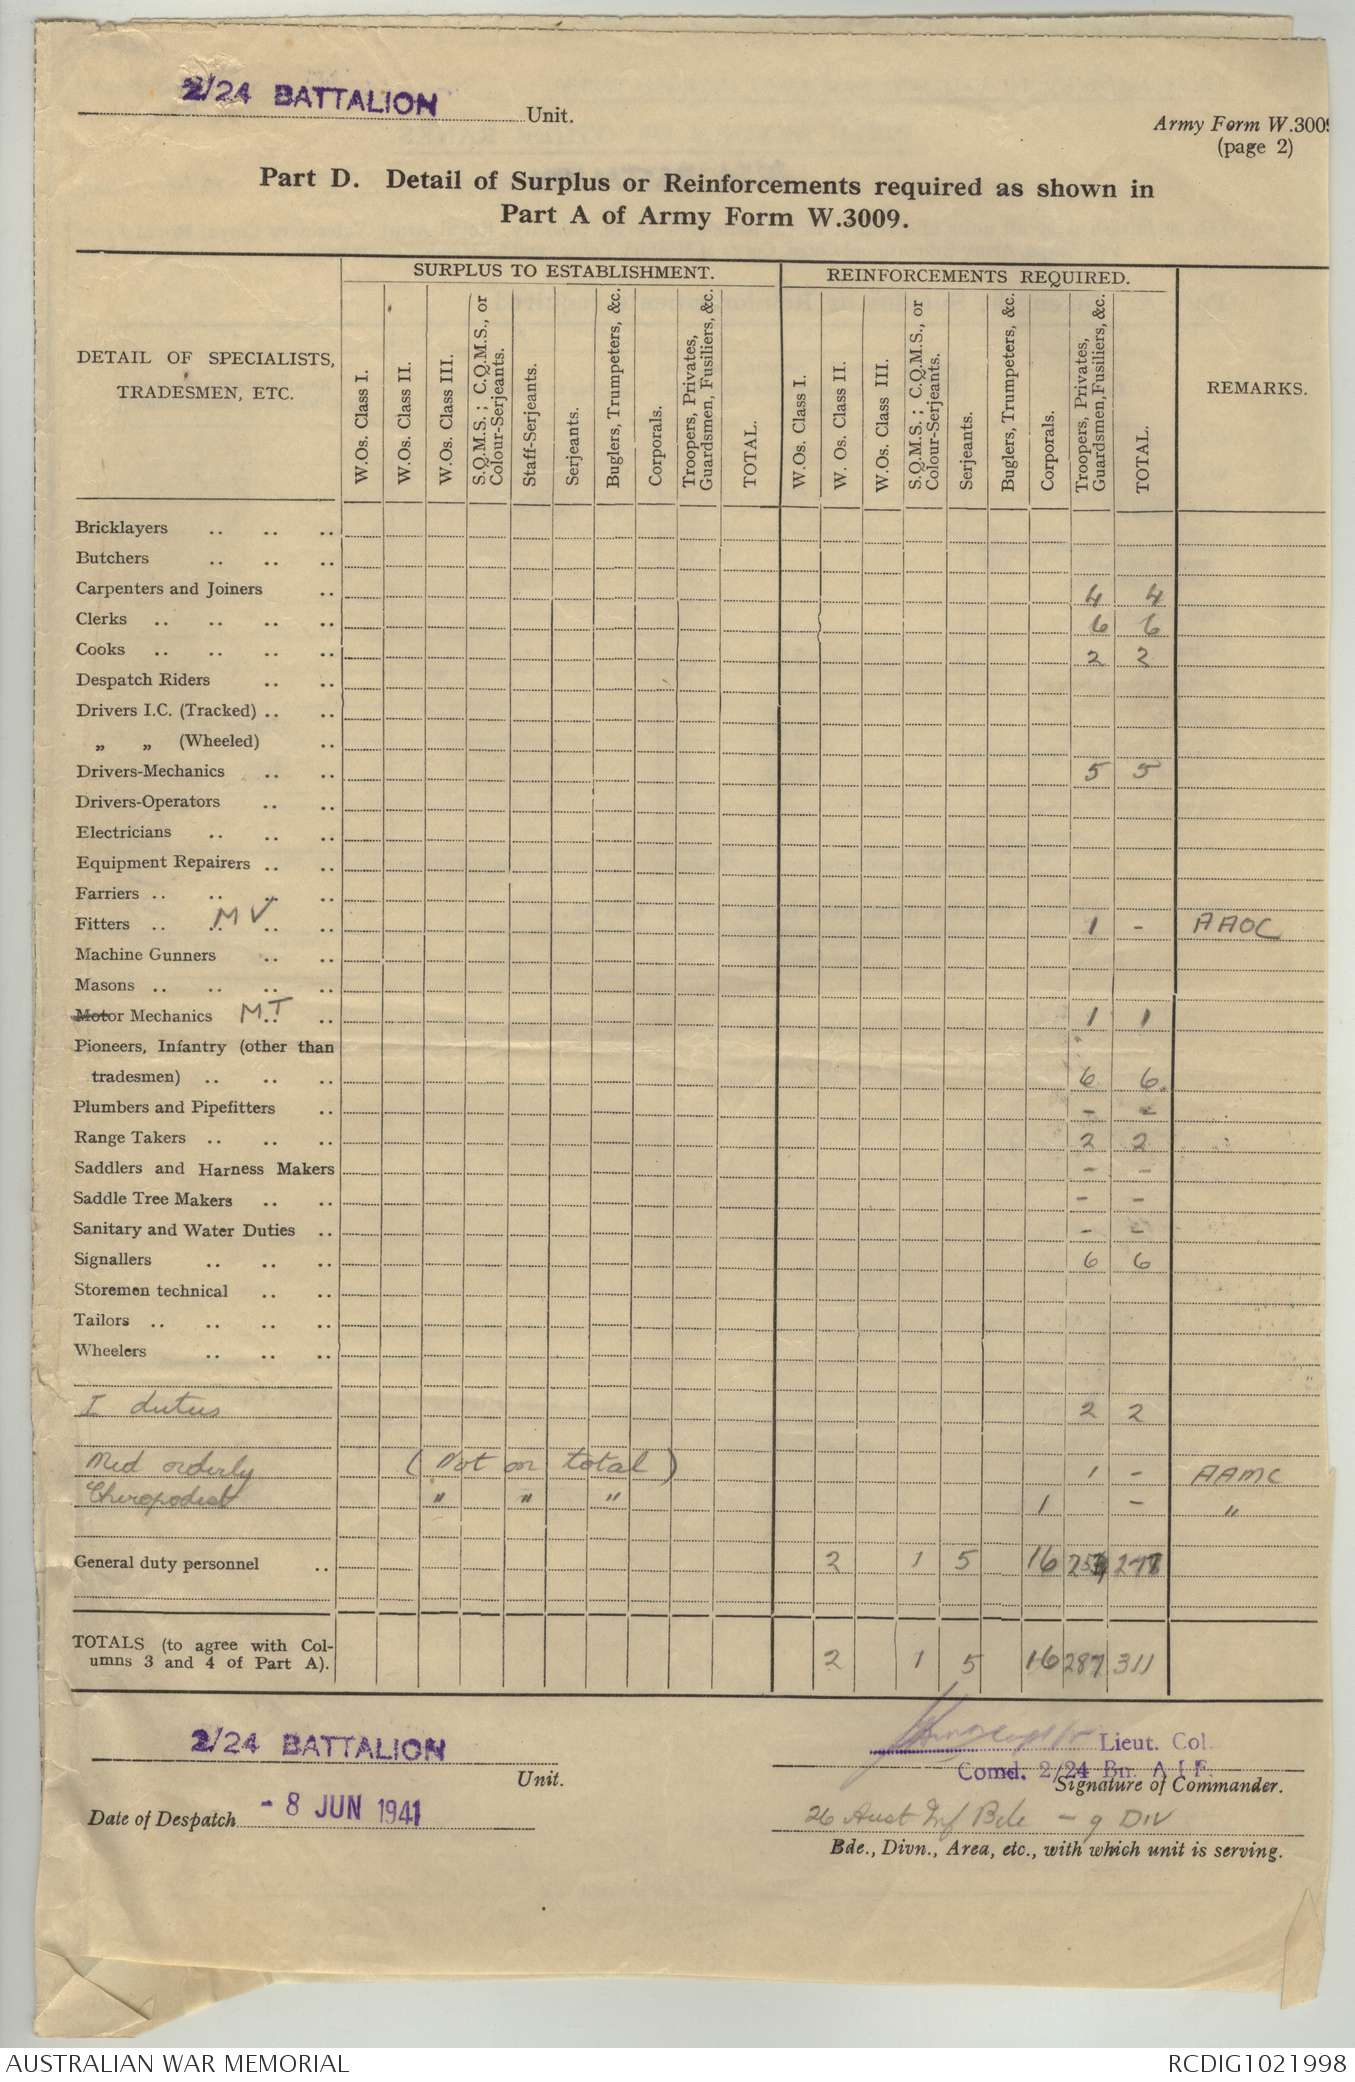 2/24 BATTALION Unit.
Army Form W.3009
(page 2)
Part D. Detail of Surplus or Reinforcements required as shown in
Part A of Army Form W.3009.
SURPLUS TO ESTABLISHMENT. REINFORCEMENTS REQUIRED.
DETAIL OF SPECIALISTS,
TRADESMEN, ETC.
W.Os. Class I.
W.Os. Class II.
W.Os. Class III.
S.Q.M.S.; C.Q.M.S., or
Colour-Serjeants.
Staff-Serjeants.
Serjeants.
Buglers, Trumpeters, &c.
Corporals.
Troopers, Privates,
Guardsmen, Fusiliers, &c.
TOTAL.
W.Os. Class I.
W. Os. Class II.
W.Os. Class III.
S.Q.M.S.; C.Q.M.S., or
Colour-Serjeants.
Serjeants.
Buglers, Trumpeters, &c.
Corporals.
Troopers, Privates,
Guardsmen, Fusiliers, &c.
TOTAL.
REMARKS.
Bricklayers .. .. ..
Butchers .. .. ..
Carpenters and Joiners .. 4 4
Clerks .. .. .. .. 6 6
Cooks .. .. .. .. 2 2
Despatch Riders .. ..
Drivers I.C. (Tracked) .. ..
„ „ (Wheeled) ..
Drivers-Mechanics .. .. 5 5
Drivers-Operators .. ..
Electricians .. .. ..
Equipment Repairers .. ..
Farriers .. .. .. ..
Fitters .. MV .. .. .. 1 - AAOC
Machine Gunners .. ..
Masons .. .. .. ..
Motor Mechanics MT .. .. 1 1
Pioneers, Infantry (other than
tradesmen) .. .. .. 6 6
Plumbers and Pipefitters .. - -
Range Takers .. .. .. 2 2
Saddlers and Harness Makers - -
Saddle Tree Makers .. .. - -
Sanitary and Water Duties .. - -
Signallers .. .. .. 6 6
Storemen technical .. ..
Tailors .. .. .. ..
Wheelers .. .. ..
I duties 2 2
Med orderly (Not on total) 1 - AAMC
Chiropodist " " " 1 - "
General duty personnel .. 2 1 5 16 278
TOTALS (to agree with Col-
umns 3 and 4 of Part A). 2 1 5 16 287 311
2/24 BATTALION
Unit.
Lieut. Col.
Comd. 2/24 Bn. A.I.F.
Signature of Commander.
Date of Despatch - 8 JUN 1941
26 Aust Inf Bde - 9 DIV
Bde., Divn., Area, etc., with which unit is serving.
AUSTRALIAN WAR MEMORIAL RCDIG1021998